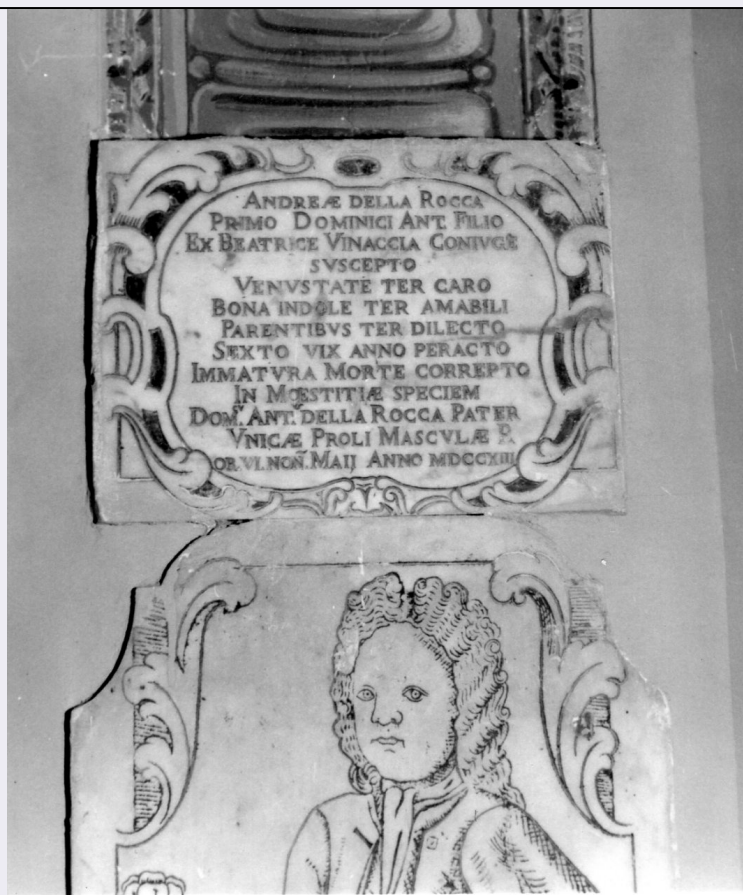 ANDREÆ DELLA ROCCA
PRIMO DOMINICI ANT. FILIO
EX BEATRICE VINACCIA CONIVGE
SVSCEPTO
VENVSTATE TER CARO
BONA INDOLE TER AMABILI
PARENTIBVS TER DILECTO
SEXTO VIX ANNO PERACTO
IMMATVRA MORTE CORREPTO
IN MŒSTITIÆ SPECIEM
DOM. ANT. DELLA ROCCA PATER
VNICÆ PROLI MASCVLÆ P.
OB. VI. NON. MAIJ ANNO MDCCXIII